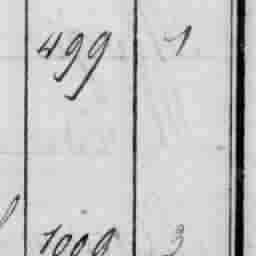 499 1
1009 3